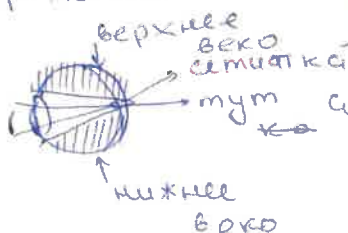 верхнее
веко
сетчатка
тут
нижнее
воко